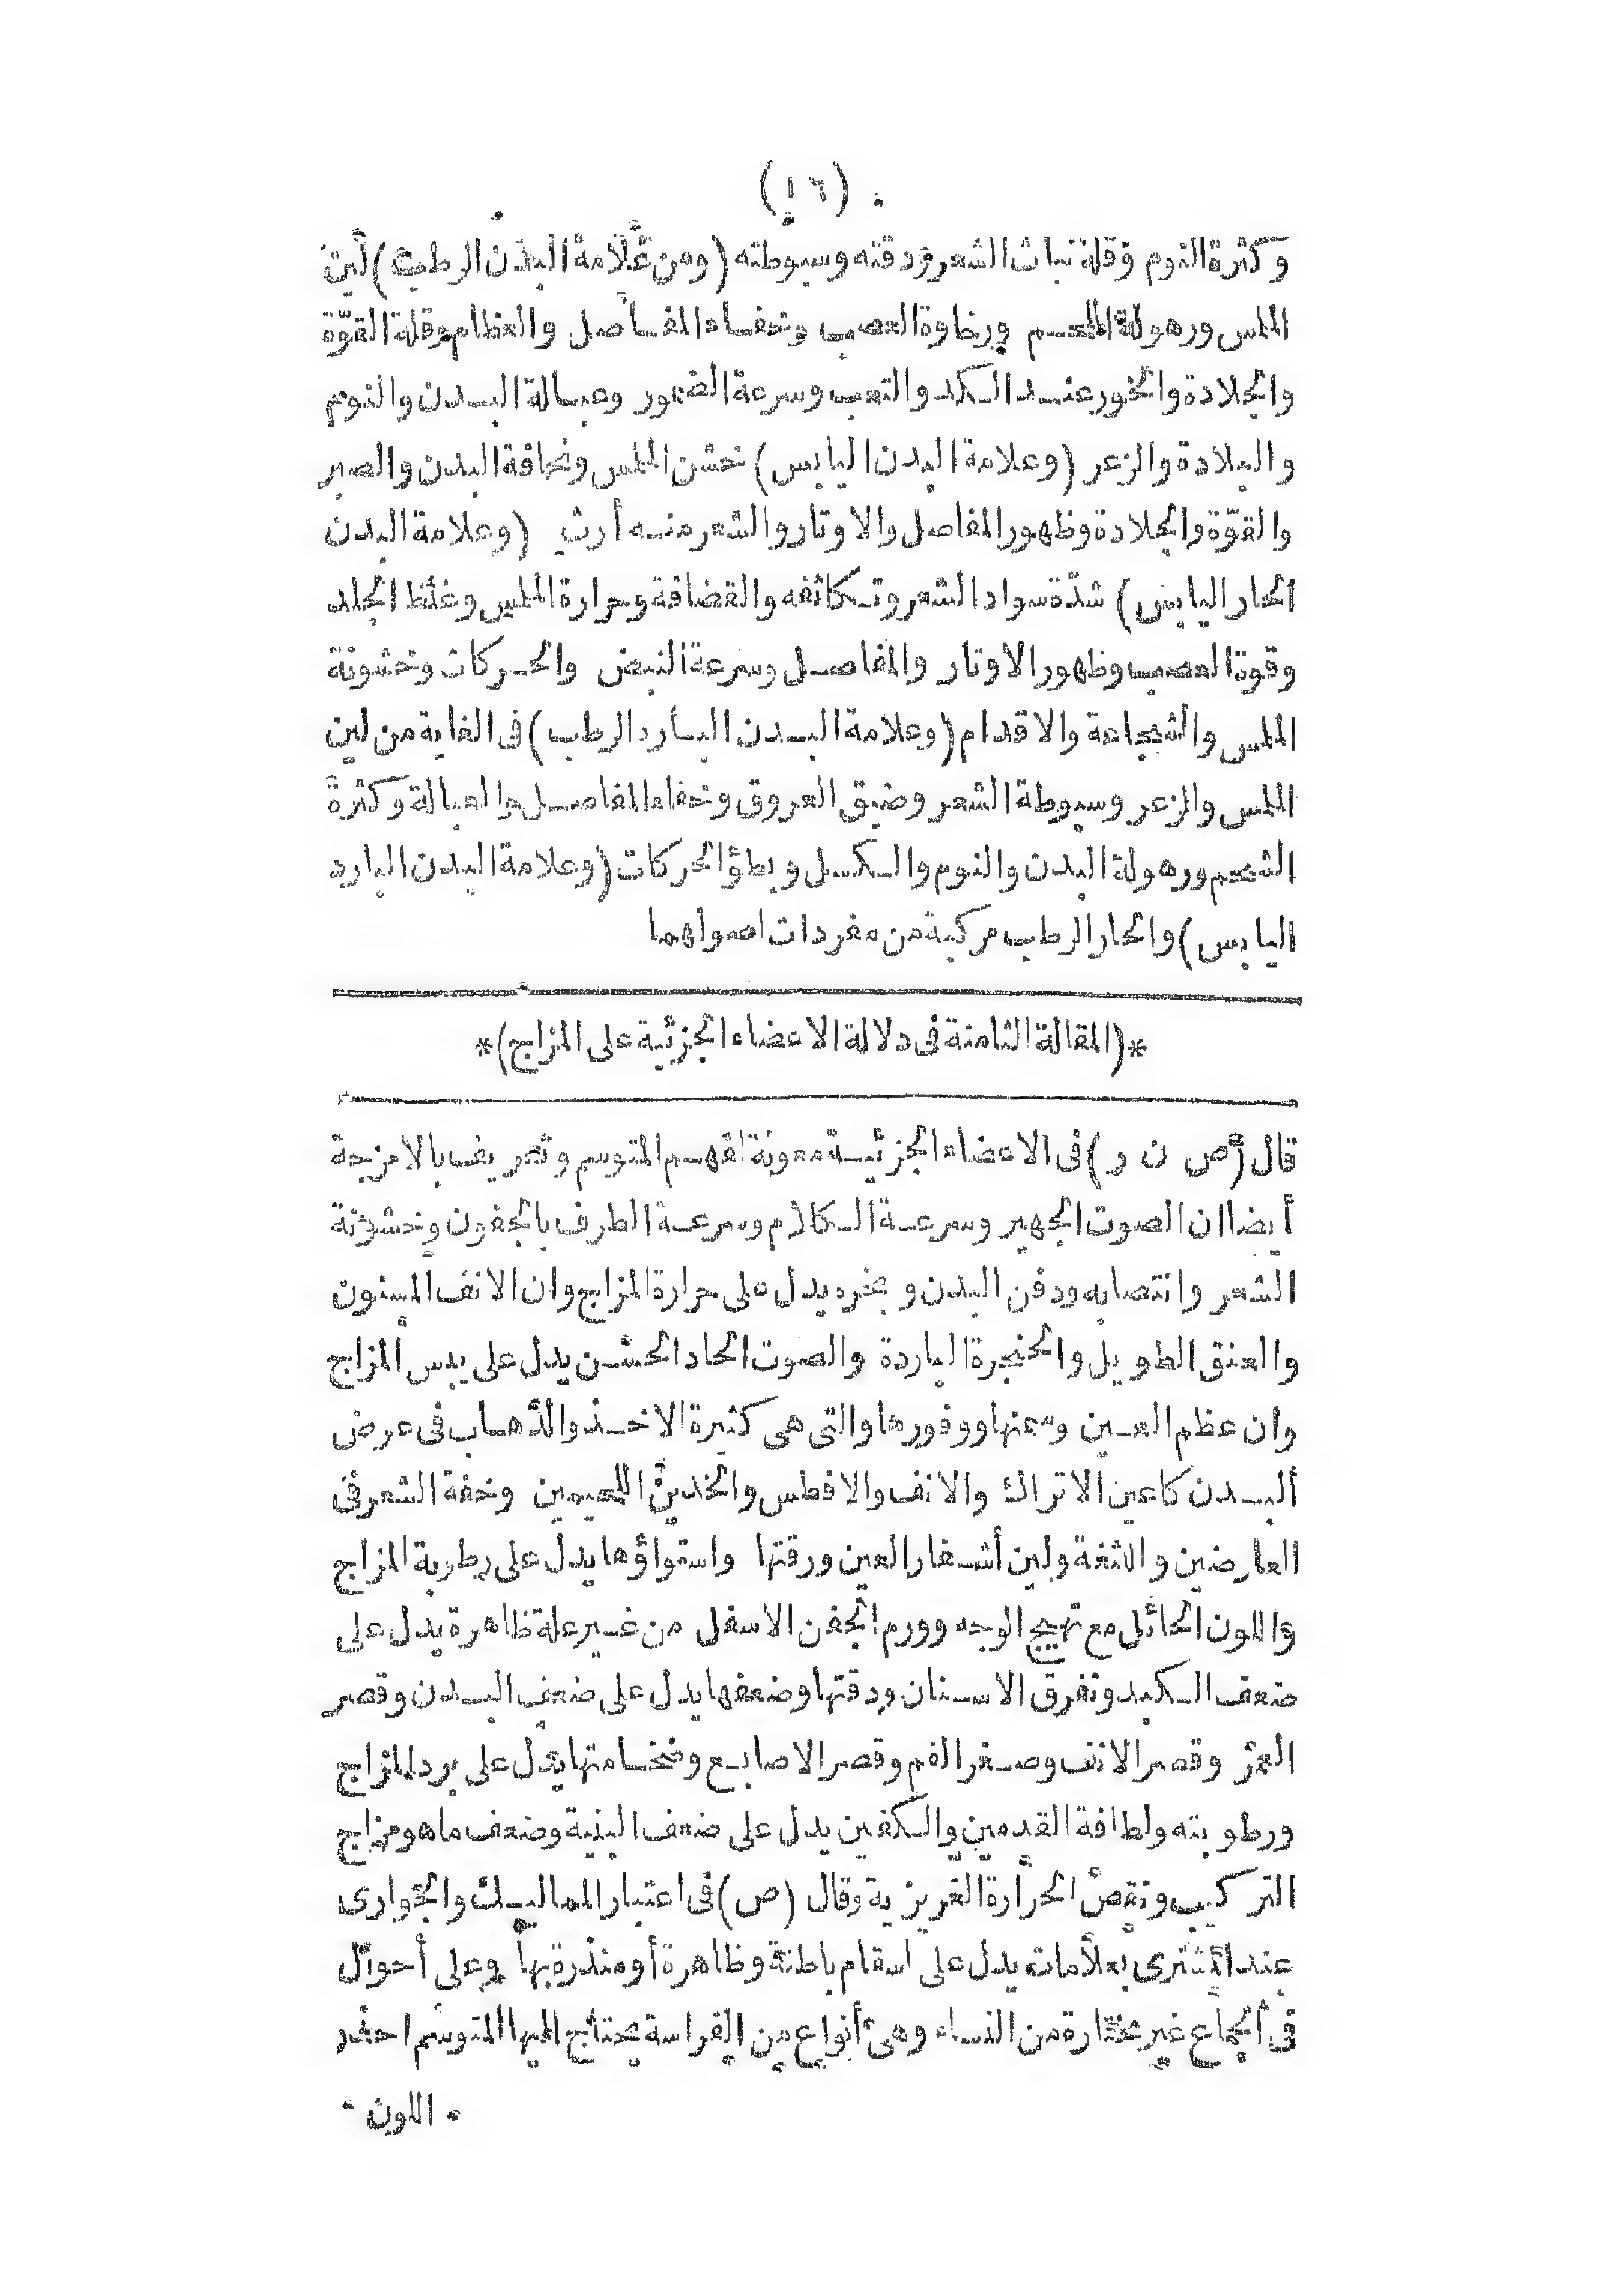 (١٦)
وكثرة النوم وقلة نبات الشعر ودقته وسبوطته (ومن علامة البدن الرطب) لين
الملس ورهولة اللحم ورخاوة العصب وخفاء المفاصل والعظام وقلة القوّة
والجلادة والخور عند الكد والتعب وسرعة الضمور وعبالة البدن والنوم
والبلادة والزعر (وعلامة البدن اليابس) خشن الملس ونحافة البدن والصبر
والقوّة والجلادة وظهور المفاصل والاوتار والشعر منه أرث (وعلامة البدن
الحار اليابس) شدّة سواد الشعر وتكاثفه والقضافة وحرارة الملس وغلظ الجلد
وقوة العصب وظهور الاوتار والمفاصل وسرعة النبض والحركات وخشونة
الملس والشجاعة والاقدام (وعلامة البدن البارد الرطب) فى الغاية من لين
الملس والزعر وسبوطة الشعر وضيق العروق وخفاء المفاصل والعبالة وكثرة
الشحم ورهولة البدن والنوم والكسل وبطؤ الحركات (وعلامة البدن البارد
اليابس) والحار الرطب مركبة من مفردات اصولهما
*(المقالة الثامنة فى دلالة الاعضاء الجزئية على المزاج)*
قال (ص ن ر) فى الاعضاء الجزئية معونة لفهم المتوسم وتعريف بالامزجة
أيضا ان الصوت الجهير وسرعة الكلام وسرعة الطرف بالجفون وخشونة
الشعر وانتصابه ودفن البدن وبخره يدل على حرارة المزاج وان الانف المسنون
والعنق الطويل والحنجرة الباردة والصوت الحاد الخشن يدل على يبس المزاج
وان عظم العين وسعتها ووفورها والتى هى كثيرة الاخذ والذهاب فى عرض
البدن كاعين الاتراك والانف والافطس والخدين اللحيمين وخفة الشعر فى
العارضين واللثغة ولين أشفار العين ورقتها واستواؤها يدل على رطوبة المزاج
واللون الحائل مع تهيج الوجه وورم الجفن الاسفل من غير علة ظاهرة يدل على
ضعف الكبد وتفرق الاسنان ودقتها وضعفها يدل على ضعف البدن وقصر
وقصر الانف وصغر الفم وقصر الاصابع وضخامتها يدل على برد المزاج
ورطوبته ولطافة القدمين والكفين يدل على ضعف البنية وضعف ما هو مزاج
التركيب ونقص الحرارة الغريزية وقال (ص) فى اعتبار المماليك والجوارى
عند المشترى بعلامات يدل على اسقام باطنة وظاهرة أو منذرة بها وعلى أحوال
فى الجماع غير مختارة من النساء وهى أنواع من الفراسة يحتاج اليها المتوسم
اللون